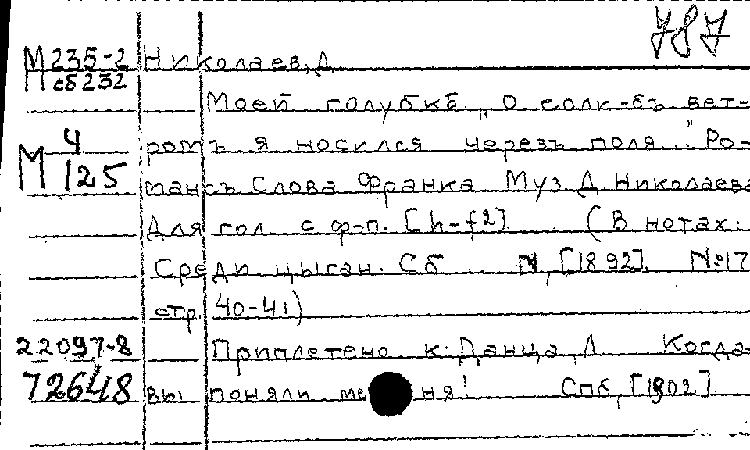 787
М 235-2 Николаев, Д.
М сб 232
Моей голубкѣ. "О если-бъ вет-
М 4/125 ромъ я носился черезъ поля..." Ро-
мансъ Слова Франка Муз Д. Николаева
Для гол. с ф-п. [h-f2] (В нотах:
Среди цыган. Сб N, [1892]. №17
стр. 40-41)
22097-8 Приплетено к: Данца, Л Когда-
72648 вы поняли меня! Спб, [1902]